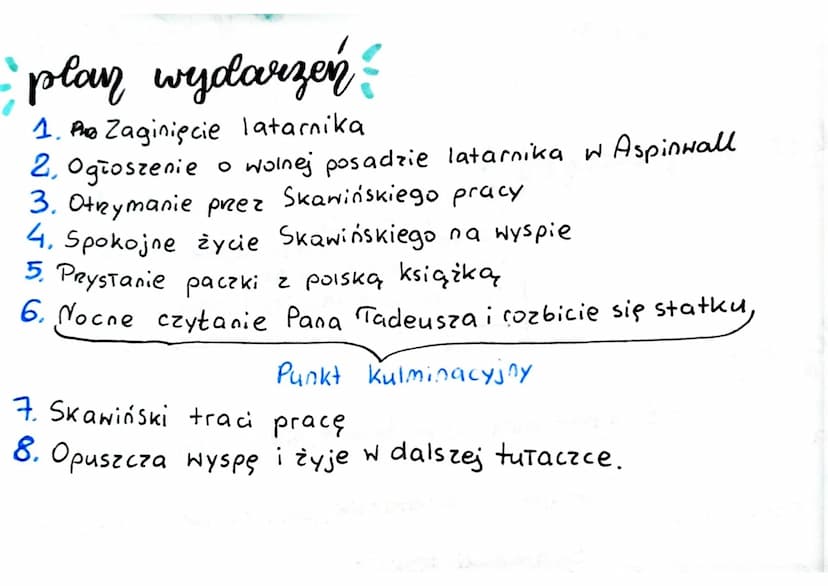 plan wydarzeń
1. Zaginięcie latarnika
2. Ogłoszenie o wolnej posadzie latarnika w Aspinwall
3. Otrzymanie przez Skawińskiego pracy
4. Spokojne życie Skawińskiego na wyspie
5. Przysłanie paczki z polską książką
6. Nocne czytanie Pana Tadeusza i rozbicie się statku,
Punkt kulminacyjny
7. Skawiński traci pracę
8. Opuszcza wyspę i żyje w dalszej tułaczce.